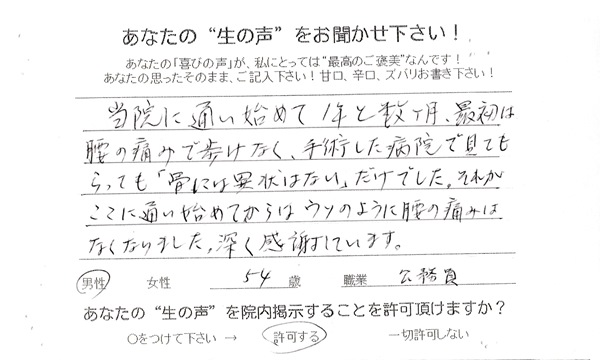 あなたの“生の声”をお聞かせ下さい！
あなたの「喜びの声」が、私にとっては“最高のご褒美”なんです！
あなたの思ったそのまま、ご記入下さい！甘口、辛口、ズバリお書き下さい！
当院に通い始めて1年と数ヶ月、最初は
腰の痛みで歩けなく、手術した病院で見ても
らっても「骨には異状はない」だけでした。それが
ここに通い始めてからはウソのように腰の痛みは
なくなりました。深く感謝しています。
男性 女性 54 歳 職業 公務員
あなたの“生の声”を院内掲示することを許可頂けますか？
○をつけて下さい → 許可する 一切許可しない